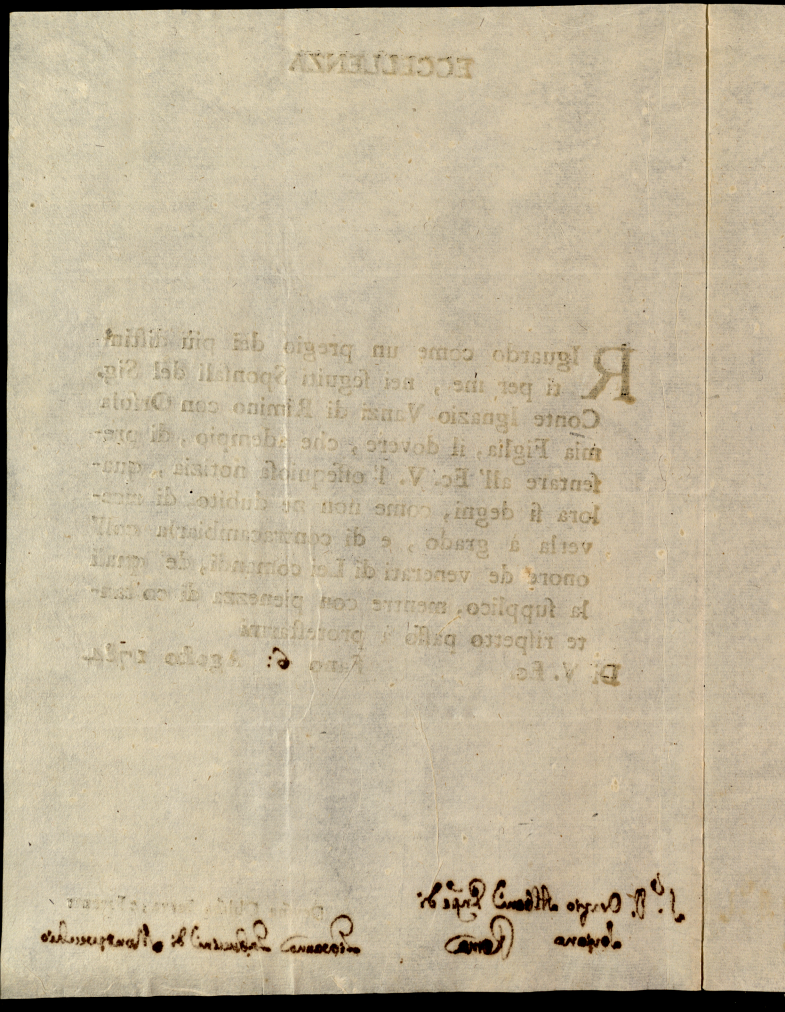 ECCELLENZA
RIguardo come un pregio dei più distinti-
ti per me, nei seguiti Sponsali del Sig.
Conte Ignazio Vanzi di Rimino con Orsola
mia Figlia, il dovere, che adempio, di pre-
sentare all' Ec. V. l' ossequiosa notizia, qua-
lora si degni, come non ne dubito, di rice-
verla à grado, e di contracambiarla coll'
onore de venerati di Lei comandi, de quali
la supplico, mentre con pienezza di costan-
te rispetto passo à protestarmi
Di V. Ec. Fano 6: Agosto 1784
Albani
Roma
di Montevecchio